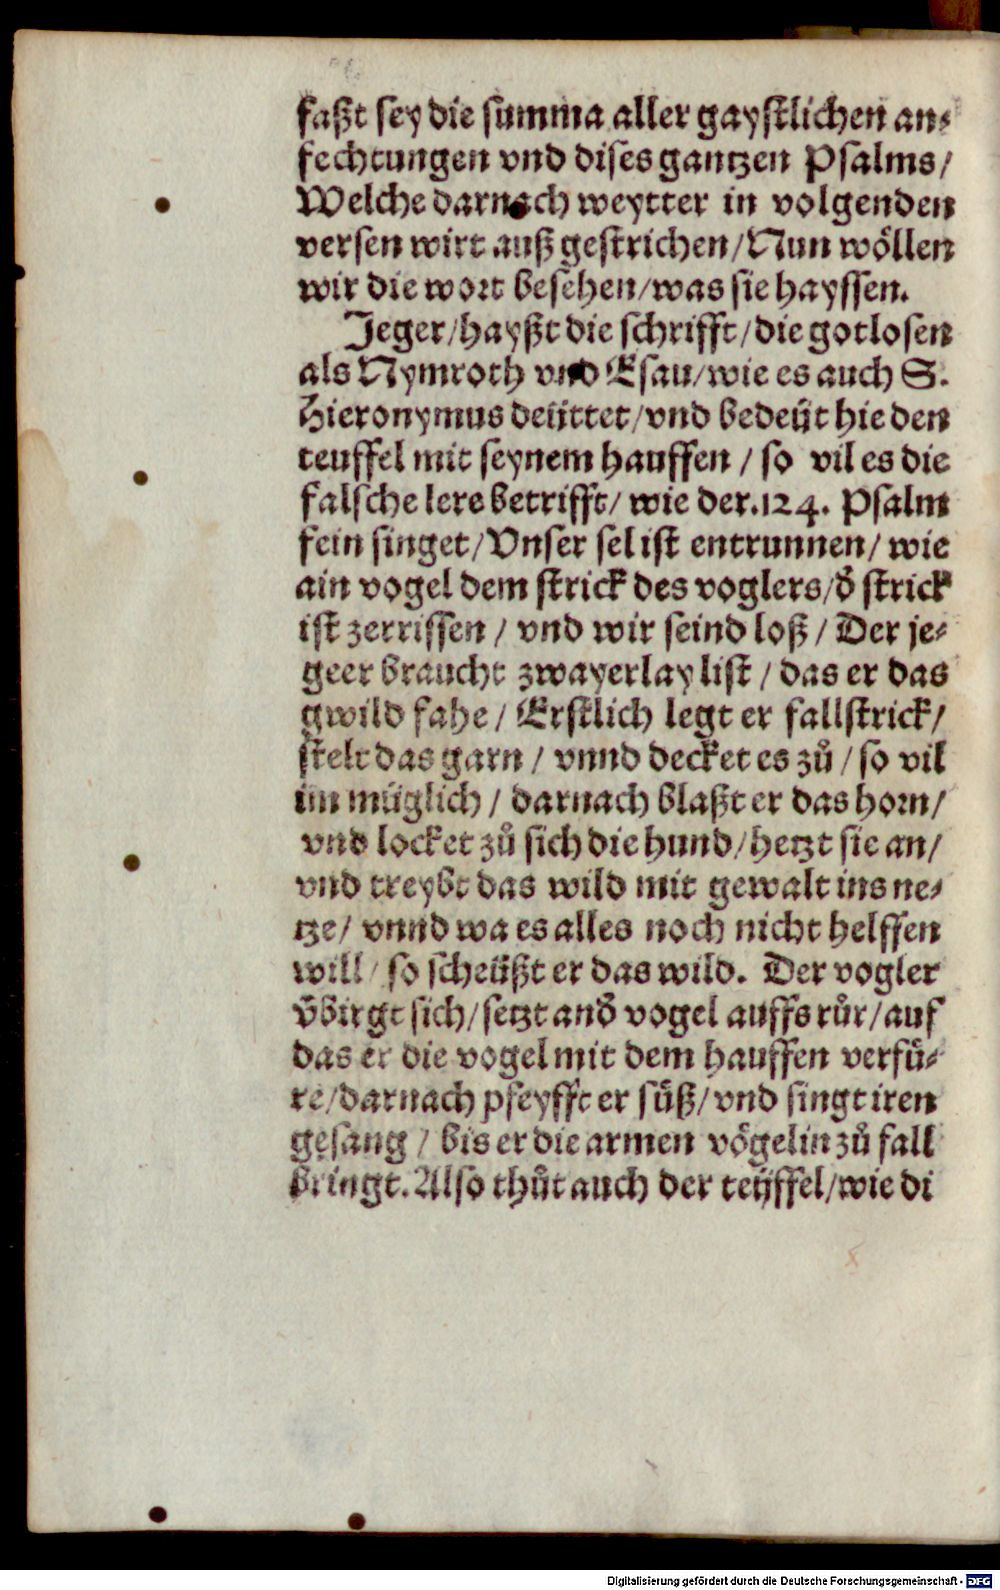 faßt sey die summa aller gaystlichen an⸗
fechtungen vnd dises gantzen Psalms/
Welche darnach weytter in volgenden
versen wirt auß gestrichen/Nun wöllen
wir die wort besehen/was sie hayssen.
Jeger/hayßt die schrifft/die gotlosen
als Nymroth vnd Esau/wie es auch S.
Hieronymus deüttet/vnd bedeüt hie den
teuffel mit seynem hauffen / so vil es die
falsche lere betrifft/ wie der.124. Psalm
fein singet/Vnser sel ist entrunnen/ wie
ain vogel dem strick des voglers/d̕ strick
ist zerrissen / vnd wir seind loß / Der je⸗
geer braucht zwayerlay list / das er das
gwild fahe / Erstlich legt er fallstrick/
stelt das garn / vnnd decket es zů / so vil
im müglich / darnach blaßt er das horn/
vnd locket zů sich die hund/hetzt sie an/
vnd treybt das wild mit gewalt ins ne⸗
tze/ vnnd wa es alles noch nicht helffen
will / so scheüßt er das wild. Der vogler
v̕birgt sich/setzt and̕ vogel auffs růr/auf
das er die vogel mit dem hauffen verfü⸗
re/darnach pfeyfft er süß/vnd singt iren
gesang / bis er die armen vögelin zů fall
bringt. Also thůt auch der teüffel/wie di
Digitalisierung gefördert durch die Deutsche Forschungsgemeinschaft - DFG